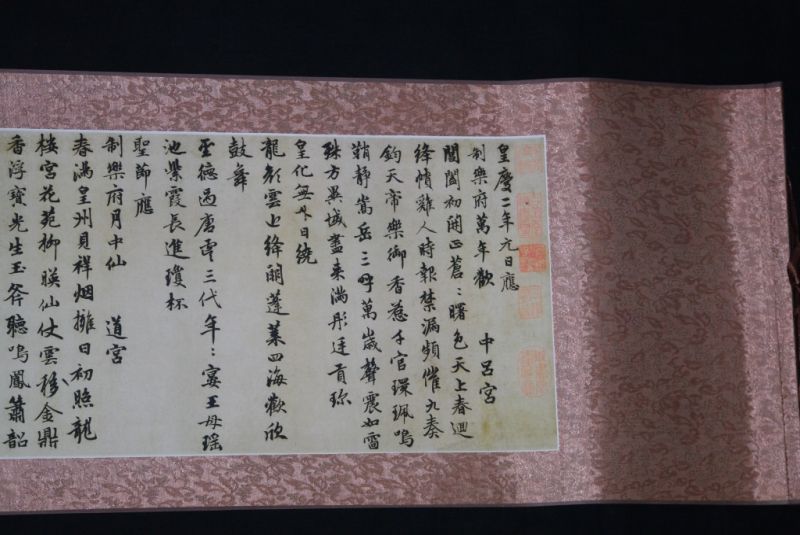 皇慶二年元日應
制樂府萬年歡 中呂宮
閶闔初開正蒼〻曙色天上春迴
絳幘雞人時報禁漏頻催九奏
鈞天帝樂御香惹千官環珮鳴
鞘靜嵩岳三呼萬歲聲震如雷
殊方異域盡來滿彤廷貢珍
皇化無外日繞
龍顏雲上絳闕蓬萊四海歡欣
鼓舞
至德過唐虞三代年〻宴王母瑤
池紫霞長進瓊杯
聖節應
制樂府月中仙 道宮
春滿皇州見祥烟擁日初照龍
樓宮花苑柳映仙仗雲移金鼎
香浮寶光生玉斧聽鳴鳳簫韶